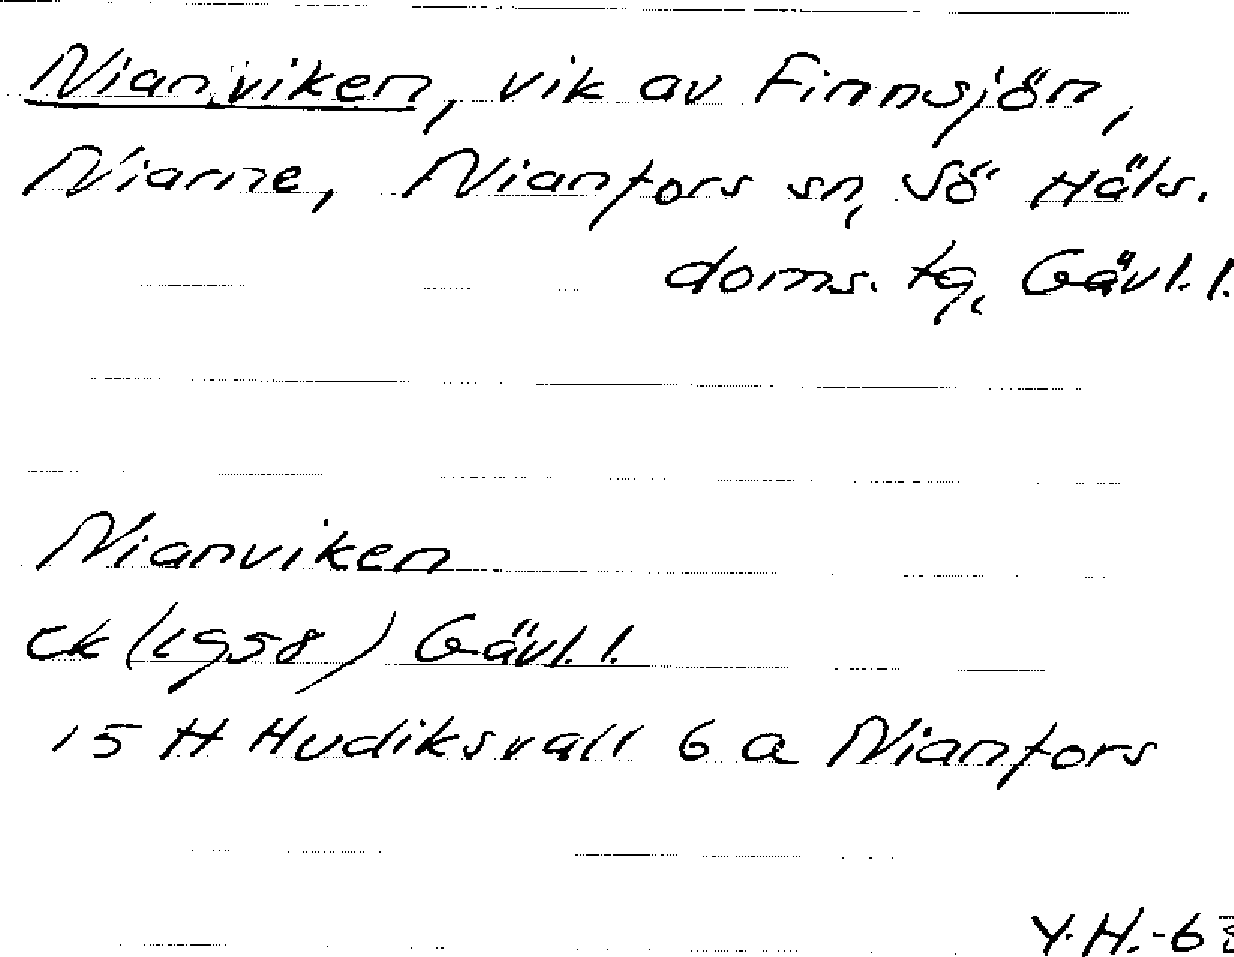 Nianviken, vik av Finnsjön,
Niarne, Nianfors sn, Sö Häls.
doms. tg, Gävl. l.
Nianviken
Ek (1958) Gävl. l.
15 H Hudiksvall 6 a Nianfors
Y.H.-63